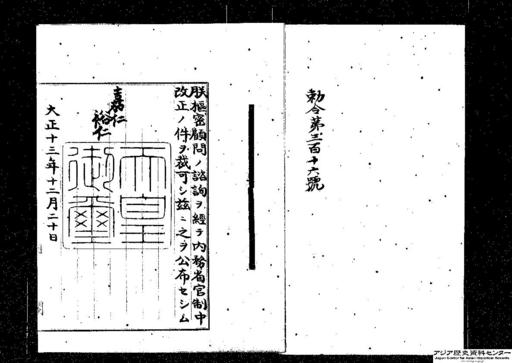 勅令第三百十六號
朕樞密顧問ノ諮詢ヲ經テ内務省官制中
改正ノ件ヲ裁可シ茲ニ之ヲ公布セシム
嘉仁
裕仁
天皇
御璽
大正十三年十二月二十日
アジア歴史資料センター
Japan Center for Asian Historical Records